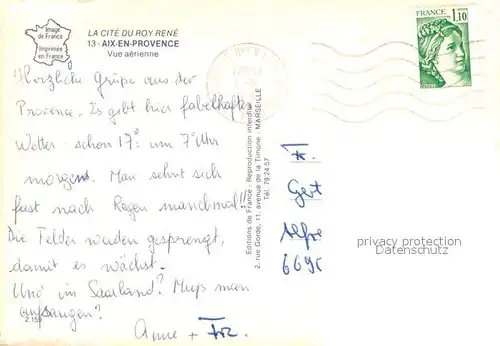 Image
de France
Imprimée
en France
LA CITÉ DU ROY RENÉ
13 - AIX-EN-PROVENCE
Vue aérienne
FRANCE
1,10
Herzliche Grüße aus der
Provence. Es gibt hier fabelhaftes
Wetter - schon 17° um 7°Uhr
morgens. Man sehnt sich
fast nach Regen manchmal!!
Die Felder werden gesprengt,
damit es wächst.
Und im Saarland? Muß man
anfangen?
2.159
Anne +
Editions de France - Reproduction interdite
2, rue Gorde, 11, avenue de la Timone - MARSEILLE
Tél. 79.24.57
Gert
669
privacy protection
Datenschutz